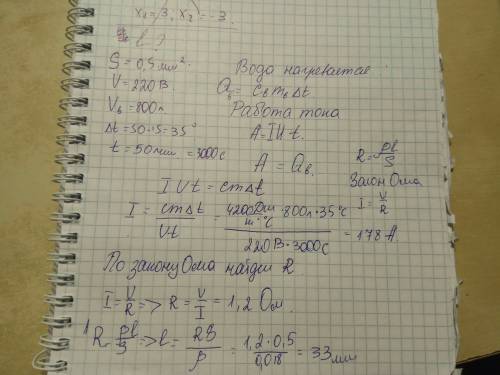 x₁=3, x₂=-3.
l-?
S = 0,5 мм².
V = 220 В.
V₆ = 800 л
Δt = 50-15 = 35°
t = 50 мин = 3000 с
Вода нагревается
Qв = cв mв Δt
Работа тока
A = IUt.
A = Qв.
R = ρl/S
Закон Ома
I = V/R
IVt = cmΔt
I = cmΔt/Vt = 4200 Дж/кг·°C · 800л · 35°C / 220В · 3000с = 178 А.
По закону Ома найдём R
I = V/R => R = V/I = 1,2 Ом.
R = ρl/S => l = RS/ρ = 1,2·0,5/0,018 = 33 мм